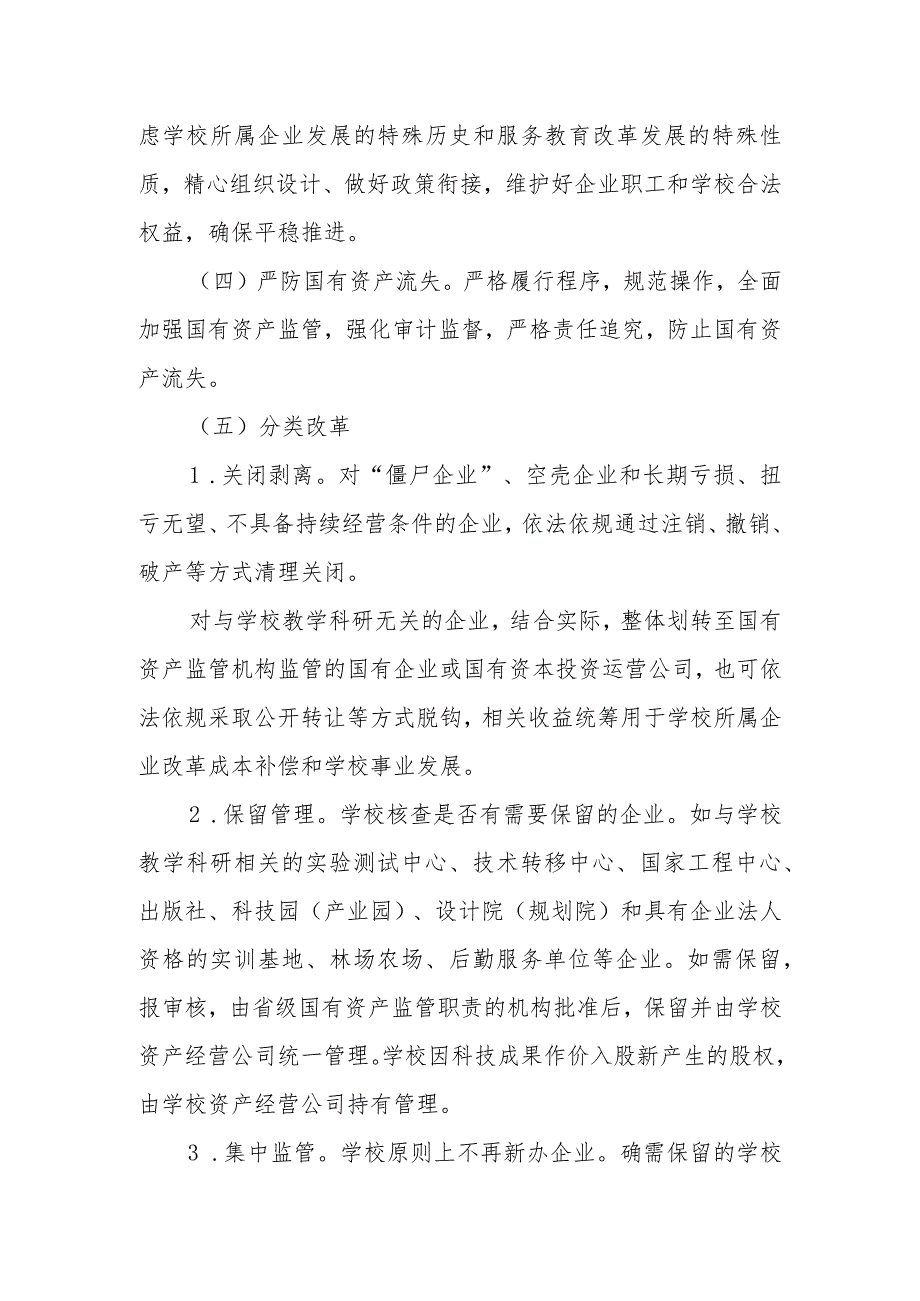 虑学校所属企业发展的特殊历史和服务教育改革发展的特殊性
质，精心组织设计、做好政策衔接，维护好企业职工和学校合法
权益，确保平稳推进。
（四）严防国有资产流失。严格履行程序，规范操作，全面
加强国有资产监管，强化审计监督，严格责任追究，防止国有资
产流失。
（五）分类改革
1.关闭剥离。对“僵尸企业”、空壳企业和长期亏损、扭
亏无望、不具备持续经营条件的企业，依法依规通过注销、撤销、
破产等方式清理关闭。
对与学校教学科研无关的企业，结合实际，整体划转至国有
资产监管机构监管的国有企业或国有资本投资运营公司，也可依
法依规采取公开转让等方式脱钩，相关收益统筹用于学校所属企
业改革成本补偿和学校事业发展。
2.保留管理。学校核查是否有需要保留的企业。如与学校
教学科研相关的实验测试中心、技术转移中心、国家工程中心、
出版社、科技园（产业园）、设计院（规划院）和具有企业法人
资格的实训基地、林场农场、后勤服务单位等企业。如需保留，
报审核，由省级国有资产监管职责的机构批准后，保留并由学校
资产经营公司统一管理。学校因科技成果作价入股新产生的股权，
由学校资产经营公司持有管理。
3.集中监管。学校原则上不再新办企业。确需保留的学校